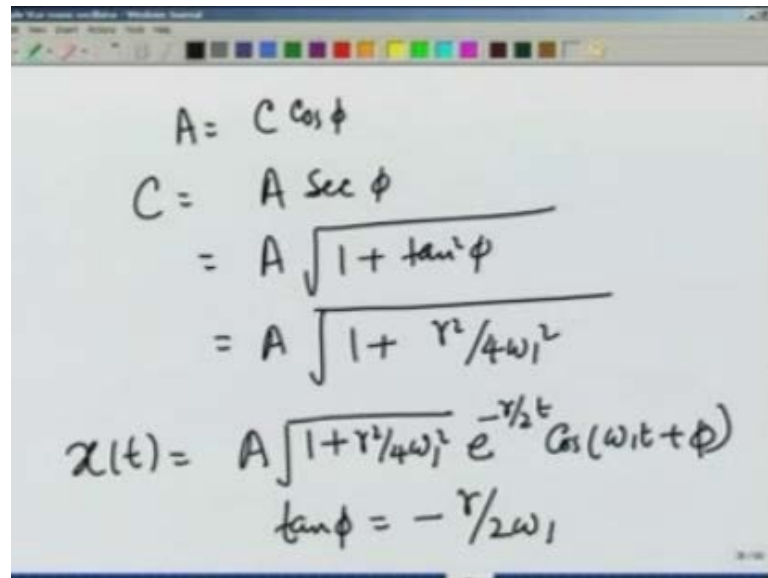 A = C cos φ
C = A sec φ
= A √(1 + tan² φ)
= A √(1 + γ²/4ω₁²)
x(t) = A √(1 + γ²/4ω₁²) e^(-γ/2 t) cos(ω₁t + φ)
tan φ = - γ/2ω₁